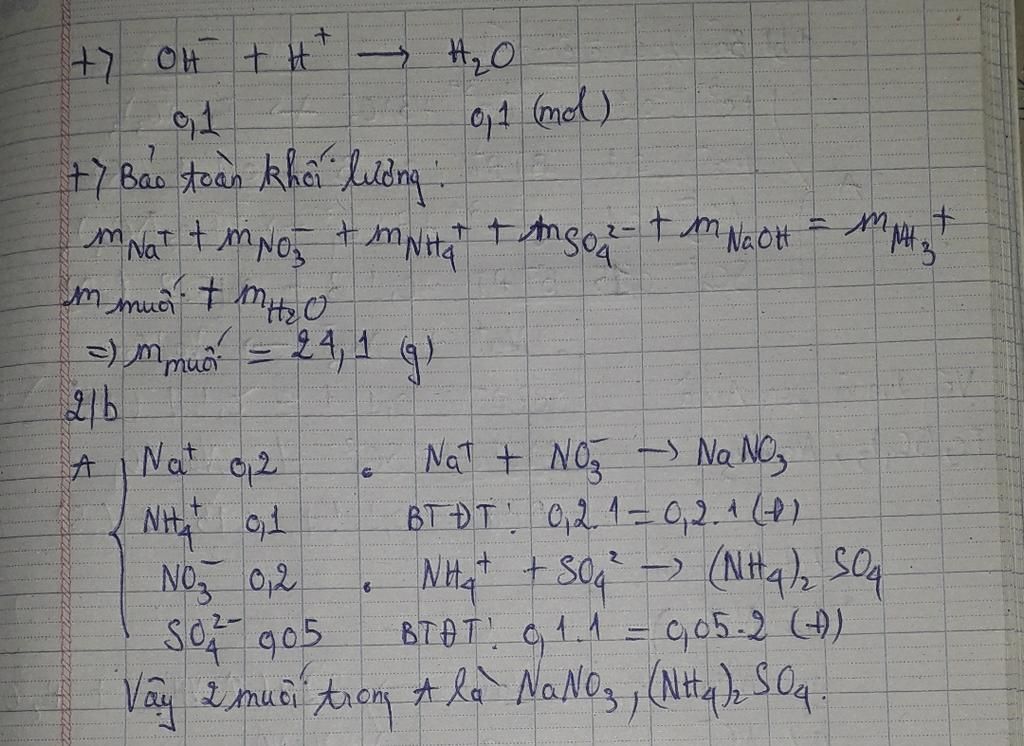 +> OH⁻ + H⁺ → H₂O
0,1 0,1 (mol)
+> Bảo toàn khối lường:
m Na⁺ + m NO₃⁻ + m NH₄⁺ + m SO₄²⁻ + m NaOH = m NH₃ +
m muối + m H₂O
=> m muối = 24,1 (g)
2/b
A { Na⁺ 0,2 • Na⁺ + NO₃⁻ → NaNO₃
NH₄⁺ 0,1 BTĐT: 0,2.1 = 0,2.1 (Đ)
NO₃⁻ 0,2 • NH₄⁺ + SO₄² → (NH₄)₂ SO₄
SO₄²⁻ 0,05 BTĐT: 0,1.1 = 0,05.2 (Đ)
Vậy 2 muối trong A là NaNO₃, (NH₄)₂ SO₄.